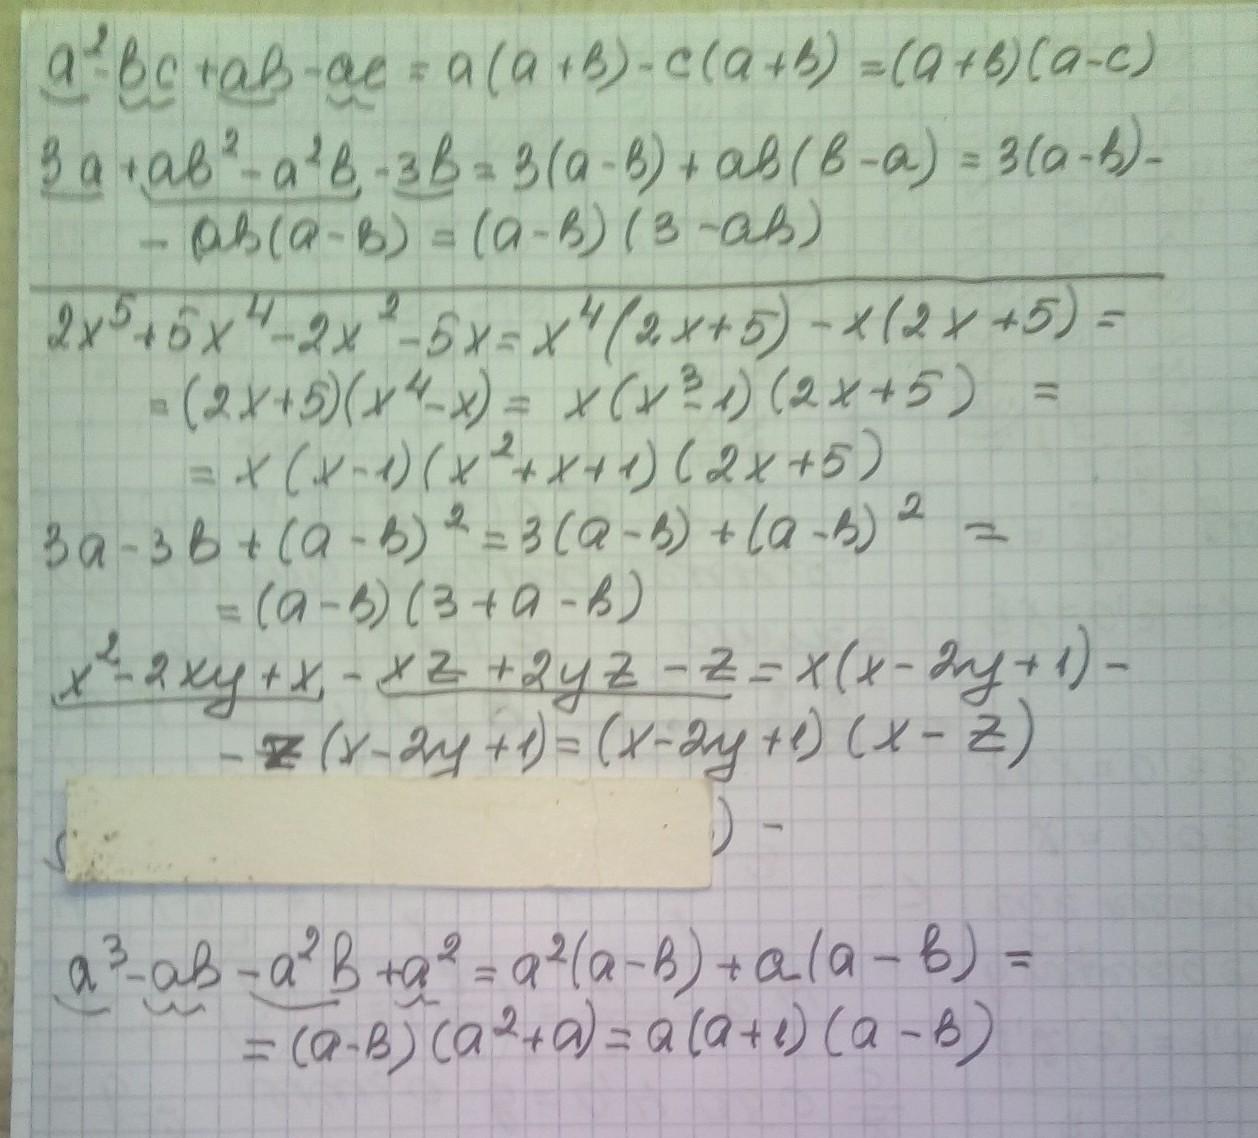 a²-bc+ab-ac = a(a+b)-c(a+b) =(a+b)(a-c)
3a+ab²-a²b-3b=3(a-b)+ab(b-a)=3(a-b)-
-ab(a-b)=(a-b)(3-ab)
2x⁵+5x⁴-2x²-5x=x⁴(2x+5)-x(2x+5)=
=(2x+5)(x⁴-x)= x(x³-1)(2x+5) =
=x(x-1)(x²+x+1)(2x+5)
3a-3b+(a-b)²=3(a-b)+(a-b)² =
=(a-b)(3+a-b)
x²-2xy+x-xz+2yz-z=x(x-2y+1)-
-z(x-2y+1)=(x-2y+1)(x-z)
) -
a³-ab-a²b+a²=a²(a-b)+a(a-b)=
=(a-b)(a²+a)=a(a+1)(a-b)